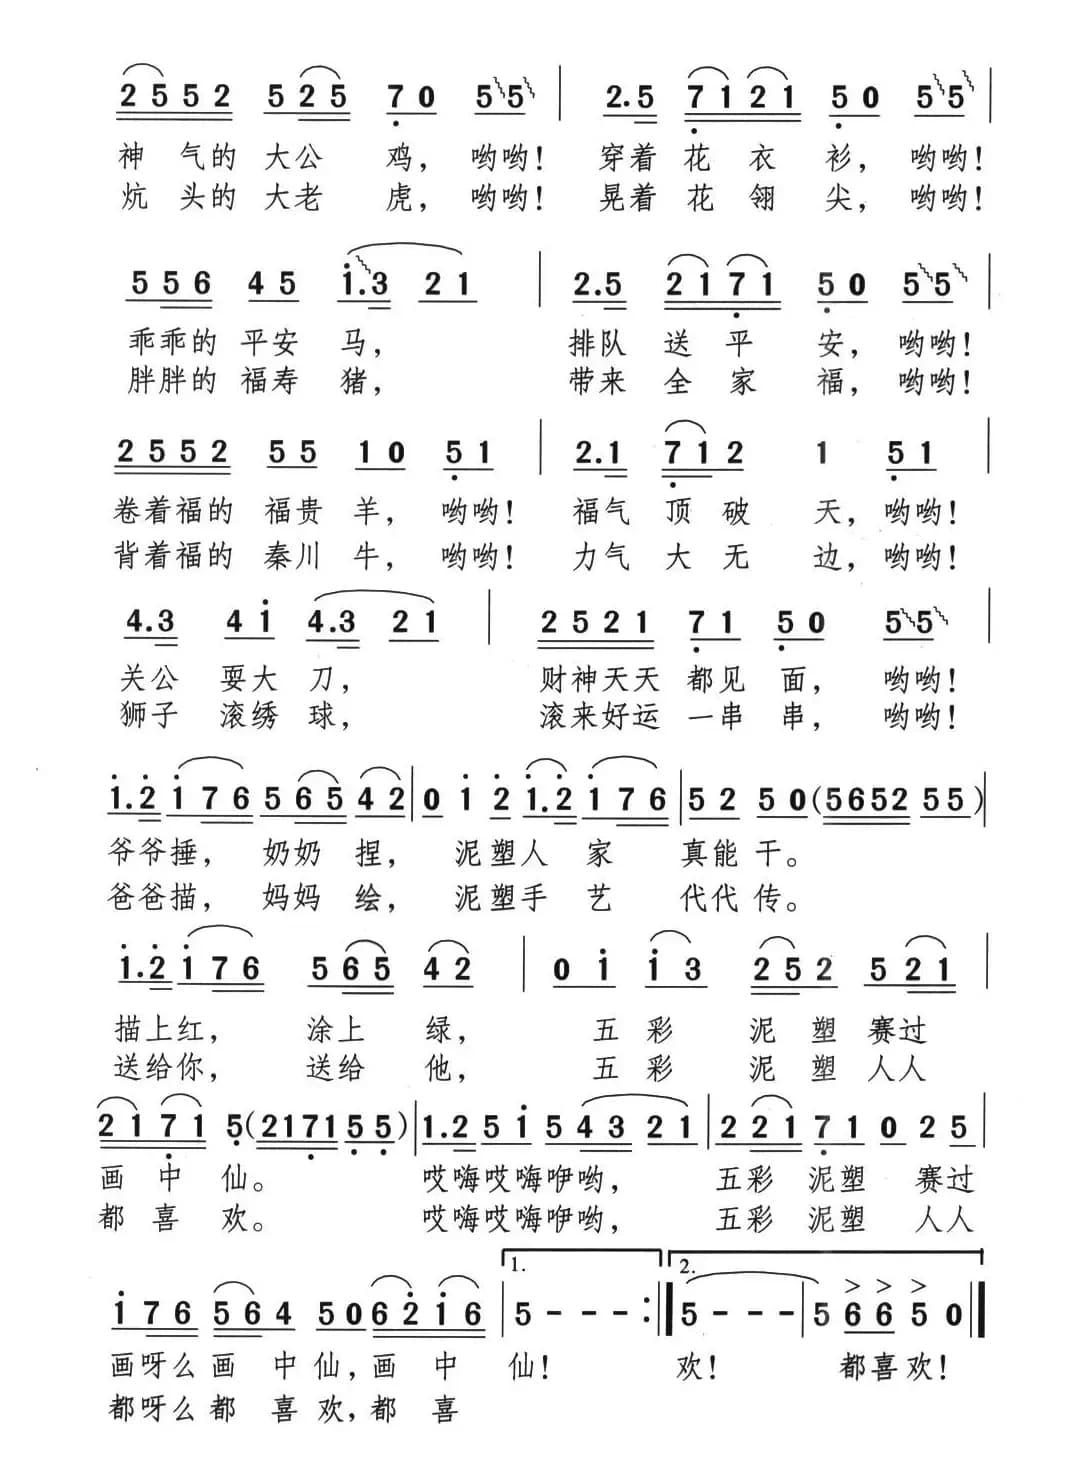 2 5 5 2 5 2 5 7 0 5 5 | 2. 5 7 1 2 1 5 0 5 5 |
神 气的 大公 鸡，哟哟！ 穿着 花 衣 衫，哟哟！
炕 头的 大老 虎，哟哟！ 晃着 花 翎 尖，哟哟！
5 5 6 4 5 1. 3 2 1 | 2. 5 2 1 7 1 5 0 5 5 |
乖乖的 平安 马， 排队 送 平 安，哟哟！
胖胖的 福寿 猪， 带来 全 家 福，哟哟！
2 5 5 2 5 5 1 0 5 1 | 2. 1 7 1 2 1 5 1 |
卷着福的 福贵 羊，哟哟！ 福气 顶 破 天，哟哟！
背着福的 秦川 牛，哟哟！ 力气 大 无 边，哟哟！
4. 3 4 1 4. 3 2 1 | 2 5 2 1 7 1 5 0 5 5 |
关公 耍大 刀， 财神天天 都见 面，哟哟！
狮子 滚绣 球， 滚来好运 一串 串，哟哟！
1. 2 1 7 6 5 6 5 4 2 | 0 1 2 1. 2 1 7 6 | 5 2 5 0 (5 6 5 2 5 5) |
爷爷捶， 奶奶 捏， 泥塑人 家 真能 干。
爸爸描， 妈妈 绘， 泥塑手 艺 代代 传。
1. 2 1 7 6 5 6 5 4 2 | 0 1 1 3 2 5 2 5 2 1 |
描上红， 涂上 绿， 五 彩 泥 塑 赛过
送给你， 送给 他， 五 彩 泥 塑 人人
2 1 7 1 5 (2 1 7 1 5 5) | 1. 2 5 1 5 4 3 2 1 | 2 2 1 7 1 0 2 5 |
画 中 仙。 哎嗨哎嗨咿哟， 五彩 泥塑 赛过
都 喜 欢。 哎嗨哎嗨咿哟， 五彩 泥塑 人人
1. 2.
1 7 6 5 6 4 5 0 6 2 1 6 | 5 - - - :| 5 - - - | 5 6 6 5 0 |
画呀么 画 中仙，画 中 仙！ 欢！ 都喜欢！
都呀么 都 喜欢，都 喜